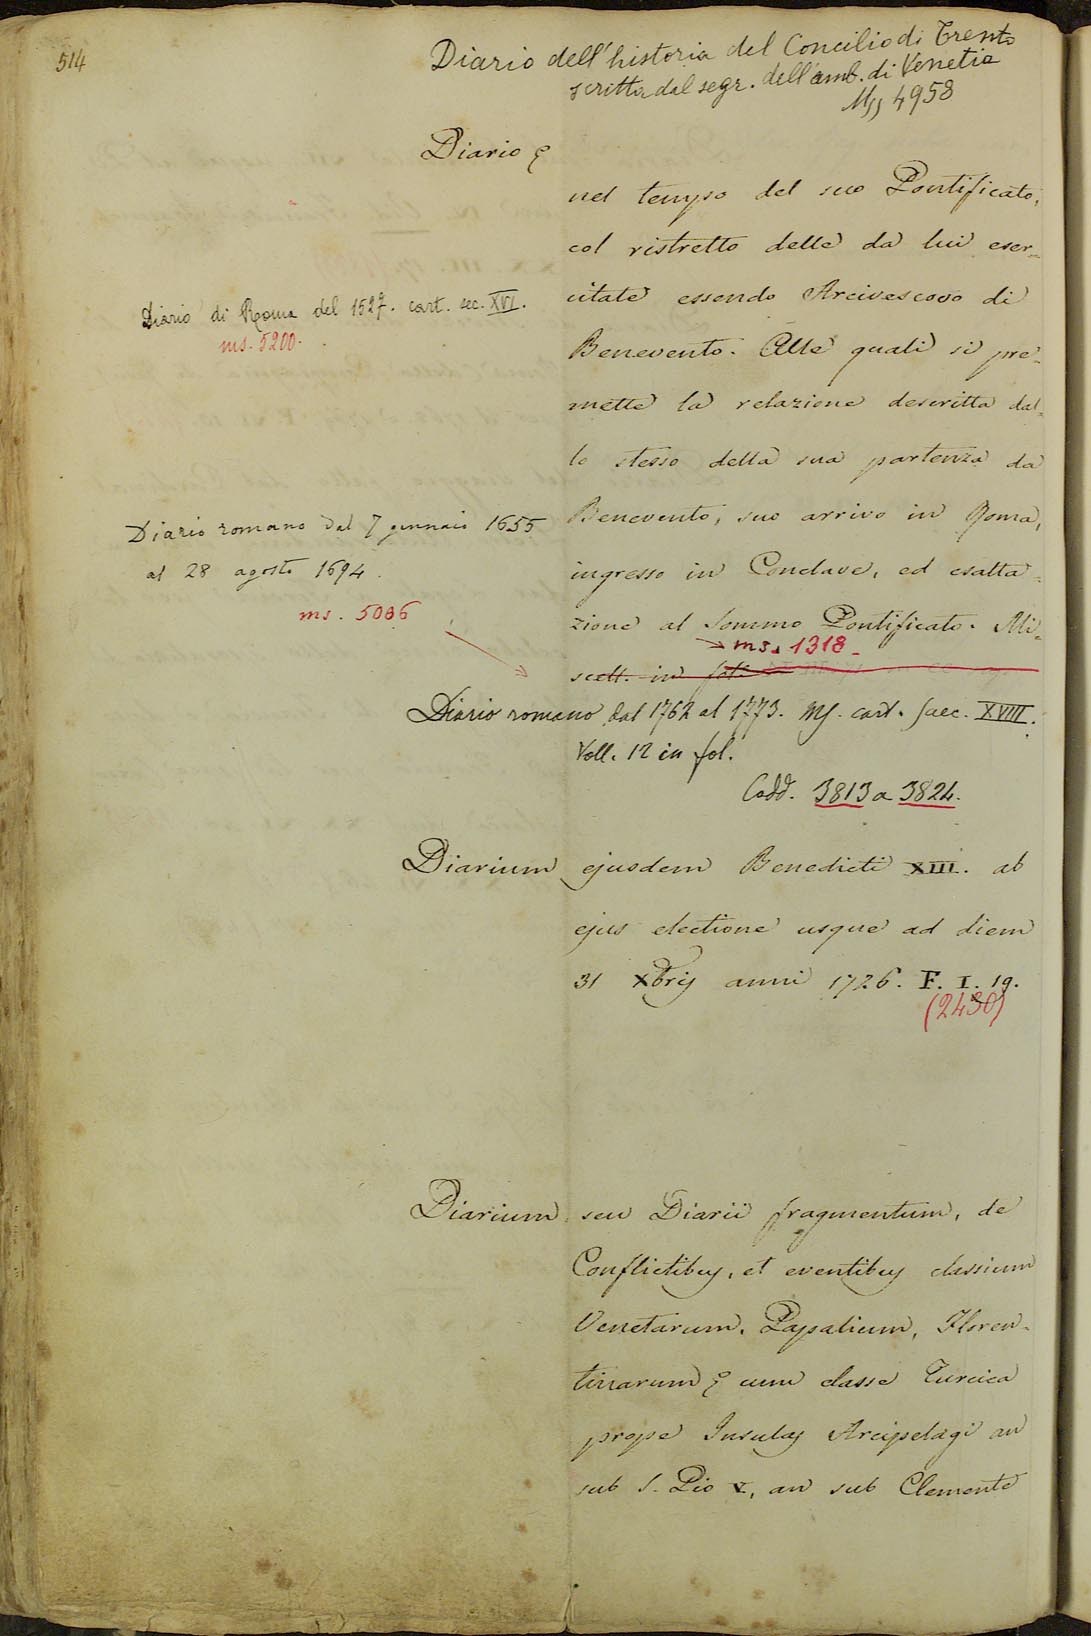 514
Diario dell'historia del Concilio di Trento
scritta dal segr. dell'amb. di Venetia
Mss 4958
Diario &
nel tempo del suo Pontificato,
col ristretto delle da lui eser-
citate essendo Arcivescovo di
Diario di Roma del 1527. cart. sec. XVI.
ms. 5200.
Benevento. Alle quali si pre-
mette la relazione descritta dal-
lo stesso della sua partenza da
Diario romano dal 7 gennaio 1655
al 28 agosto 1694.
ms. 5086
Benevento, suo arrivo in Roma,
ingresso in Conclave, ed esalta-
zione al Sommo Pontificato. Mi-
→ ms. 1318
scell. in fol.
Diario romano dal 1762 al 1773. Ms. cart. saec. XVIII.
Voll. 12 in fol.
Codd. 3813 a 3824.
Diarium ejusdem Benedicti XIII. ab
ejus electione usque ad diem
31 Xbris anni 1726. F. I. 19.
(2430)
Diarium, seu Diarii fragmentum, de
Conflictibus, et eventibus classium
Venetarum, Papalium, Floren-
tinarum & cum classe Turcica
prope Insulas Arcipelagi an
sub S. Pio V, an sub Clemente